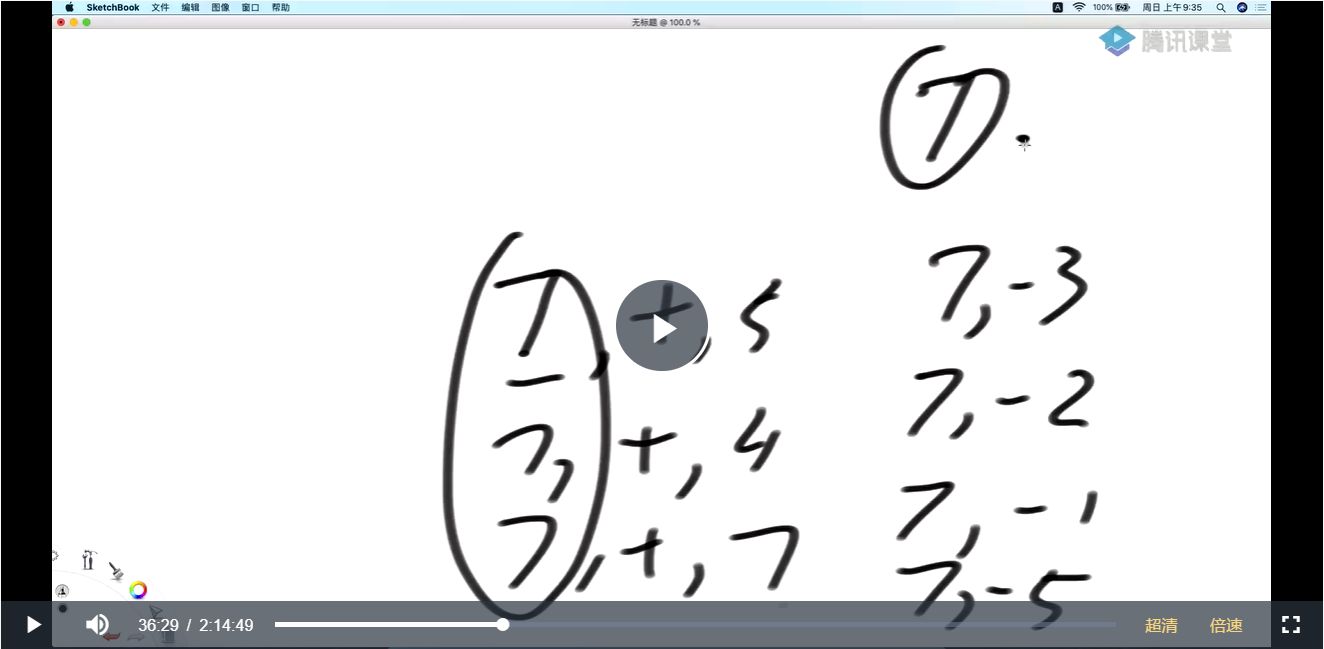 SketchBook 文件 编辑 图像 窗口 帮助
A 100% 周日 上午9:35
无标题 @ 100.0 %
腾讯课堂
7
7, +, 5
7, +, 4
7, +, 7
7, -3
7, -2
7, -1
7, -5
36:29 / 2:14:49 超清 倍速